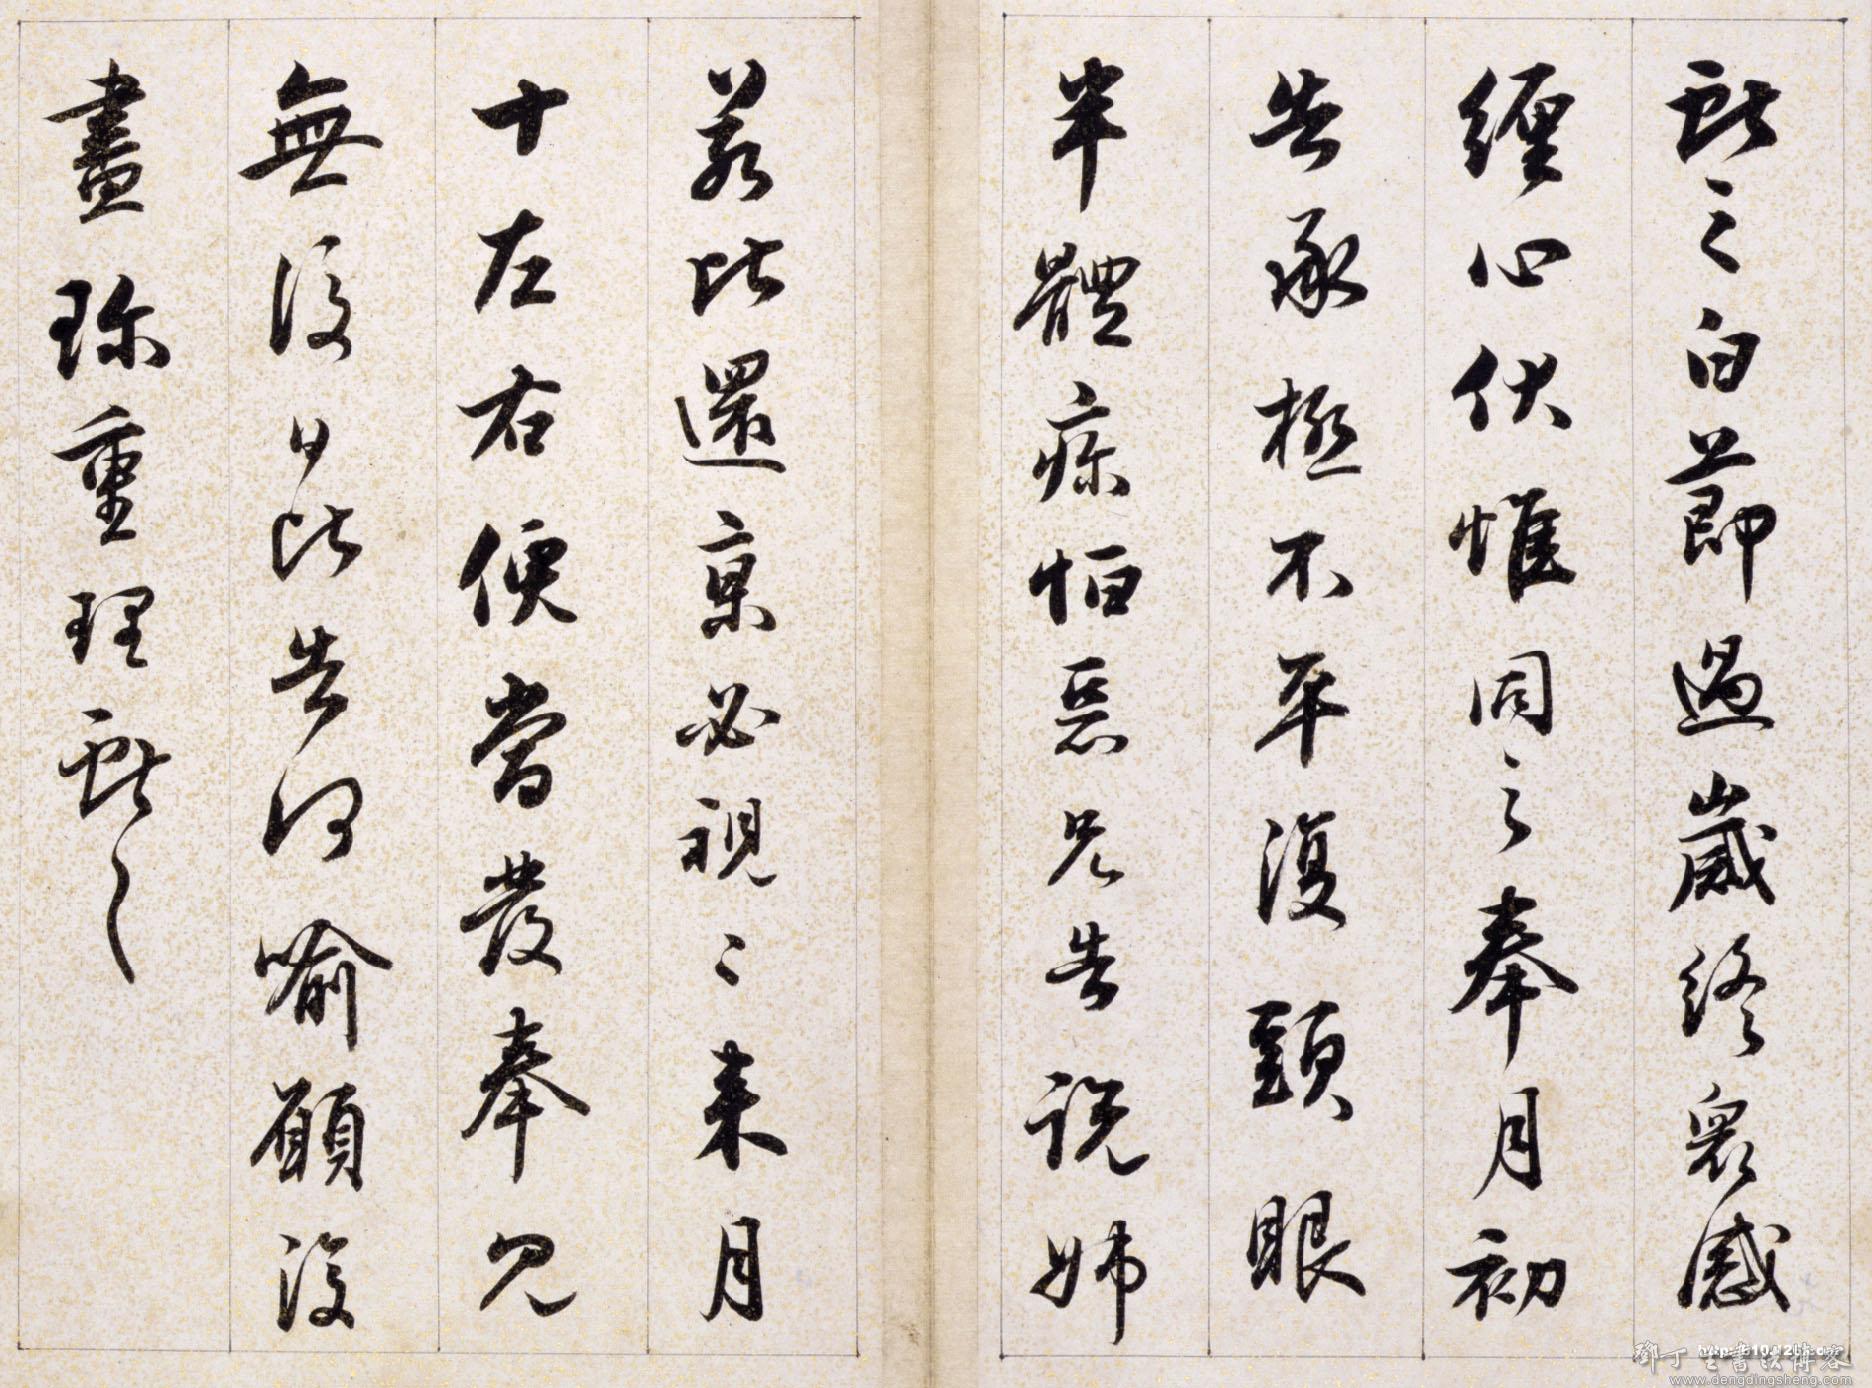 獻之白節過歲終衆感
纏心伏惟同之奉月初
告承極不平復頭眼
半體疼怕惡兄告説姊
差比還京必視之來月
十左右便當發奉見
無復日比告何喻願復
盡珎重理獻之
鄧丁生書法博客
www.dengdingsheng.com